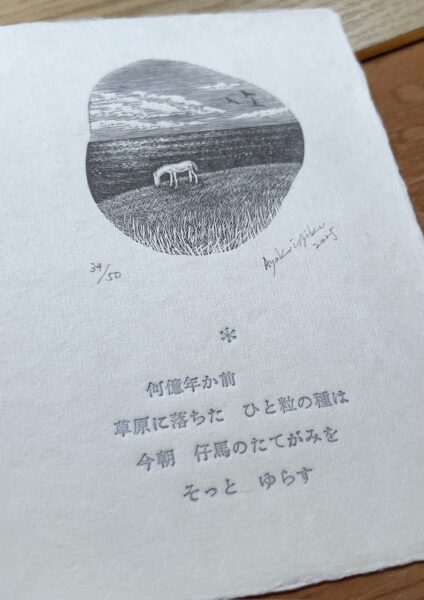 34/50
2025
＊
何億年か前
草原に落ちた　ひと粒の種は
今朝　仔馬のたてがみを
そっと　ゆらす